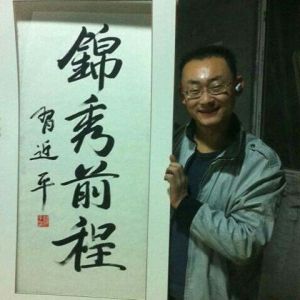 錦秀前程
習近平